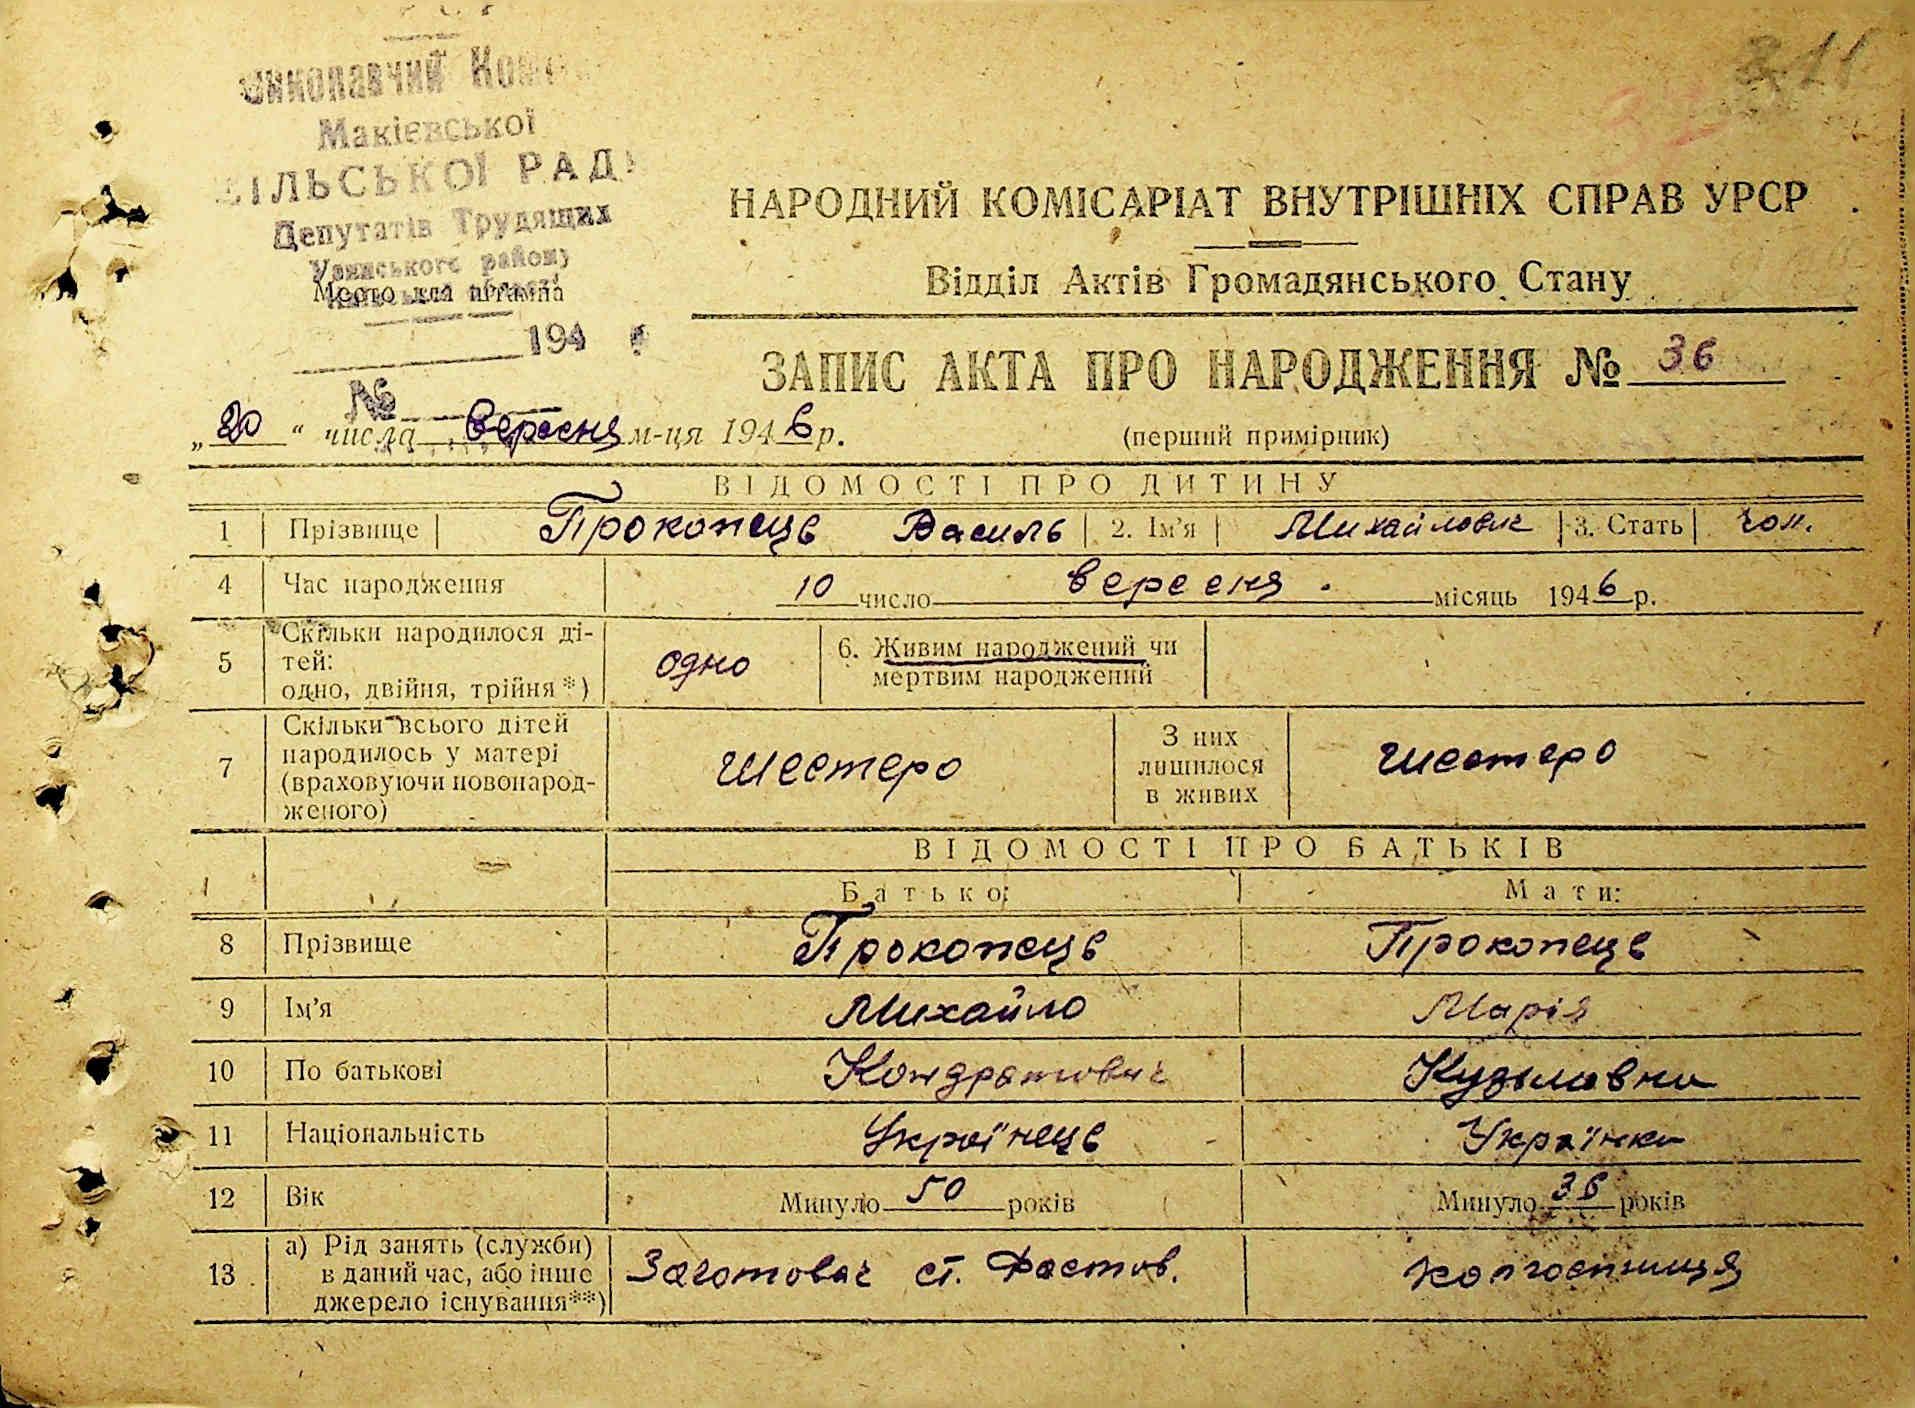 Виконавчий
Макієвської
СІЛЬСЬКОЇ РАДИ
Депутатів Трудящих
району
Место для штампа
194
№
311
НАРОДНИЙ КОМІСАРІАТ ВНУТРІШНІХ СПРАВ УРСР
Відділ Актів Громадянського Стану
ЗАПИС АКТА ПРО НАРОДЖЕННЯ № 36
„20“ числа вересня м-ця 1946 р.
(перший примірник)
ВІДОМОСТІ ПРО ДИТИНУ
1 Прізвище Прокопець Василь 2. Ім'я Михайлович 3. Стать чол.
4 Час народження 10 число вересня місяць 1946 р.
5 Скільки народилося ді-
тей:
одно, двійня, трійня*)
одно
6. Живим народжений чи
мертвим народжений
7 Скільки всього дітей
народилось у матері
(враховуючи новонарод-
женого)
Шестеро
З них
лишилося
в живих
шестеро
ВІДОМОСТІ ПРО БАТЬКІВ
Батько: Мати:
8 Прізвище Прокопець Прокопець
9 Ім'я Михайло Марія
10 По батькові Кондратович Кузьмовна
11 Національність Українець Українка
12 Вік Минуло 50 років Минуло 36 років
13 а) Рід занять (служби)
в даний час, або інше
джерело існування**)
Заготовач ст. Фастов. колгоспниця